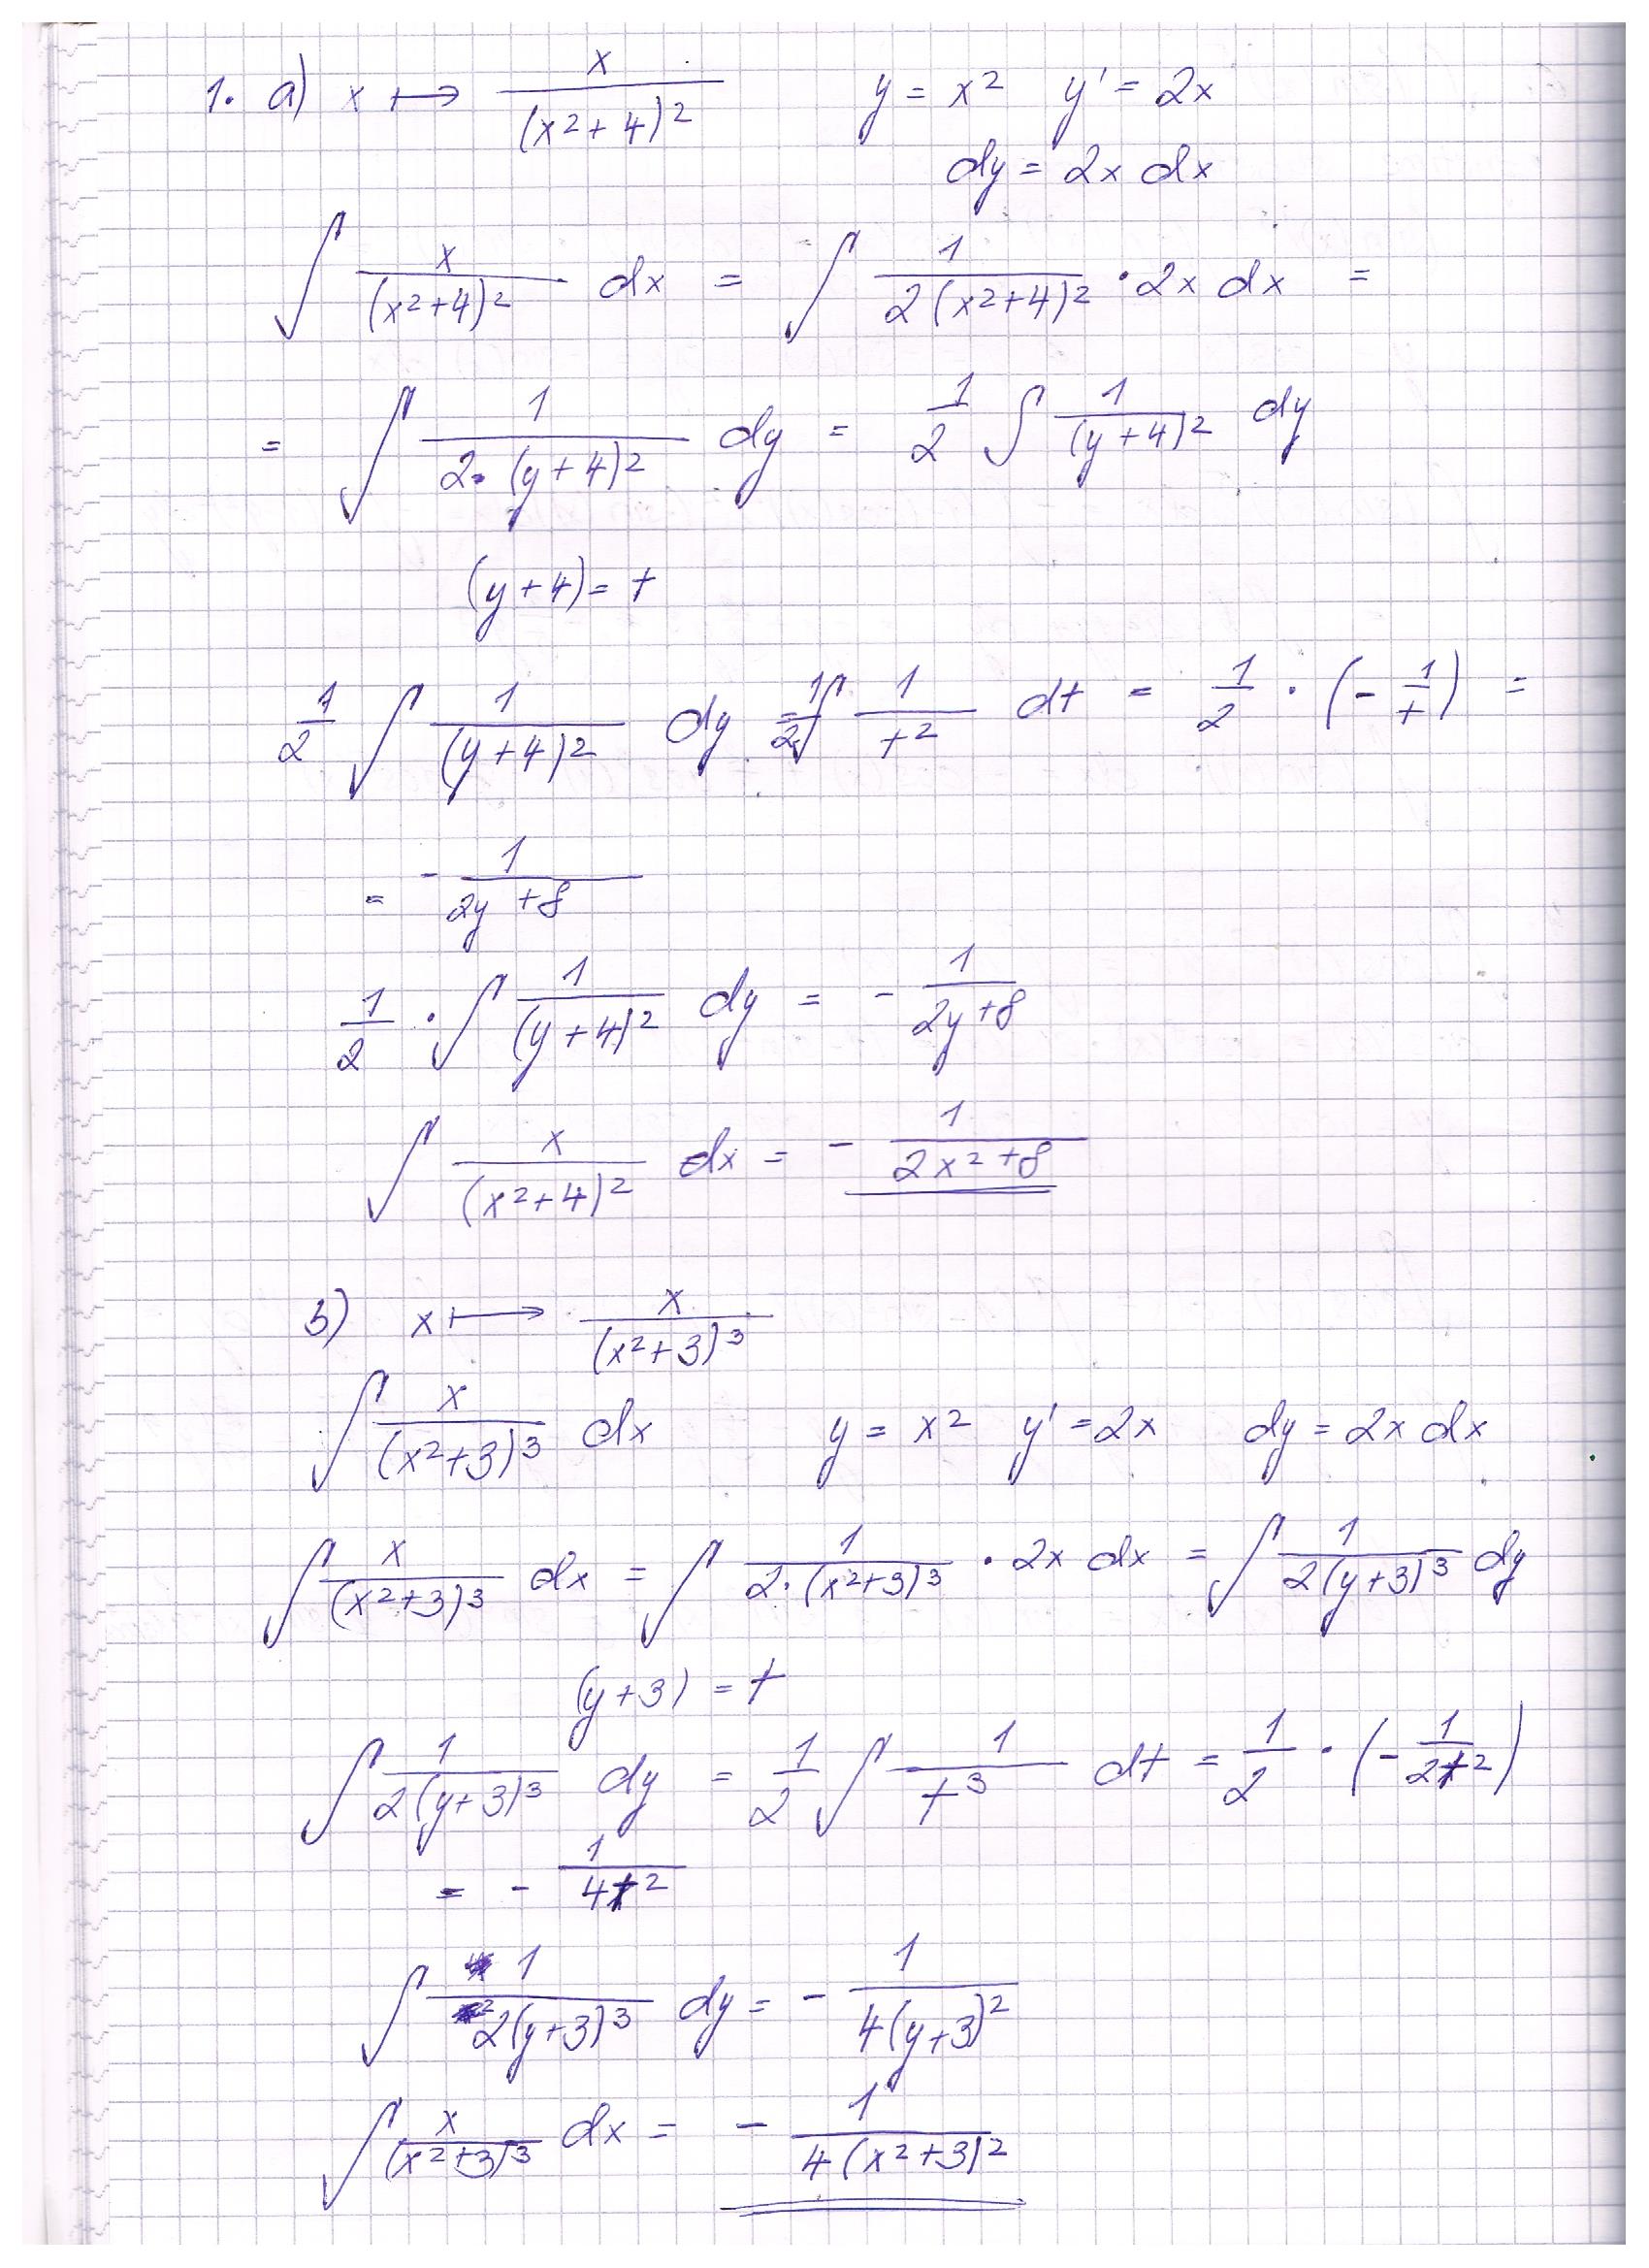 1. a) x ↦ x/(x²+4)² y = x² y' = 2x
dy = 2x dx
∫ x/(x²+4)² dx = ∫ 1/2(x²+4)² · 2x dx =
= ∫ 1/2·(y+4)² dy = 1/2 ∫ 1/(y+4)² dy
(y+4) = t
1/2 ∫ 1/(y+4)² dy = 1/2 ∫ 1/t² dt = 1/2 · (- 1/t) =
= - 1/2y+8
1/2 · ∫ 1/(y+4)² dy = - 1/2y+8
∫ x/(x²+4)² dx = - 1/2x²+8
3) x ↦ x/(x²+3)³
∫ x/(x²+3)³ dx y = x² y' = 2x dy = 2x dx
∫ x/(x²+3)³ dx = ∫ 1/2·(x²+3)³ · 2x dx = ∫ 1/2(y+3)³ dy
(y+3) = t
∫ 1/2(y+3)³ dy = 1/2 ∫ 1/t³ dt = 1/2 · (- 1/2t²)
= - 1/4t²
∫ 1/2(y+3)³ dy = - 1/4(y+3)²
∫ x/(x²+3)³ dx = - 1/4(x²+3)²